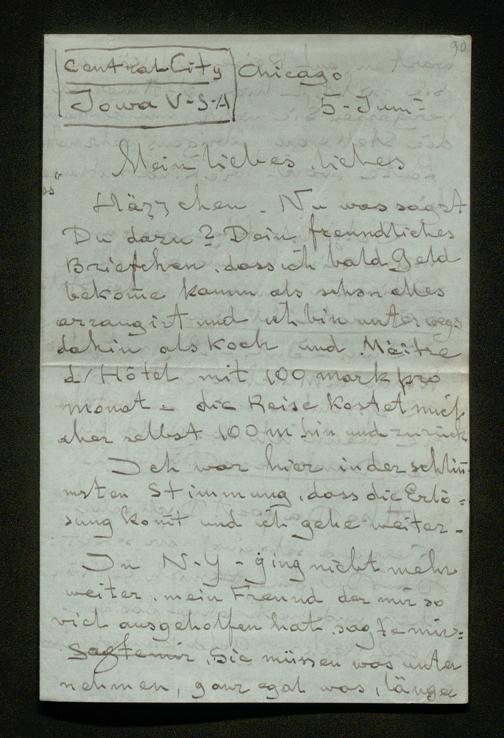 90
Central City Chicago
Iowa U-S-A 5-Juni-
Mein liebes, liebes
Häzzchen. Nu was sagst
Du dazu? Dein freundliches
Briefchen, dass ich bald Geld
bekome kamm als schon alles
arrangirt und ich bin unterwegs
dahin als Koch und Maitre
d/Hôtel mit 100 mark pro
monat = die Reise kostet mich
aber selbst 100 m hin und zurück
Ich war hier in der schlim-
msten Stimmung, dass die Erlö-
sung komt und ich gehe weiter-
In N-Y- ging nicht mehr
weiter, mein Freund der mir so
viel ausgeholfen hat, sagte mir:
Sagte mir, Sie müssen was unter
nehmen, ganz egal was, länger